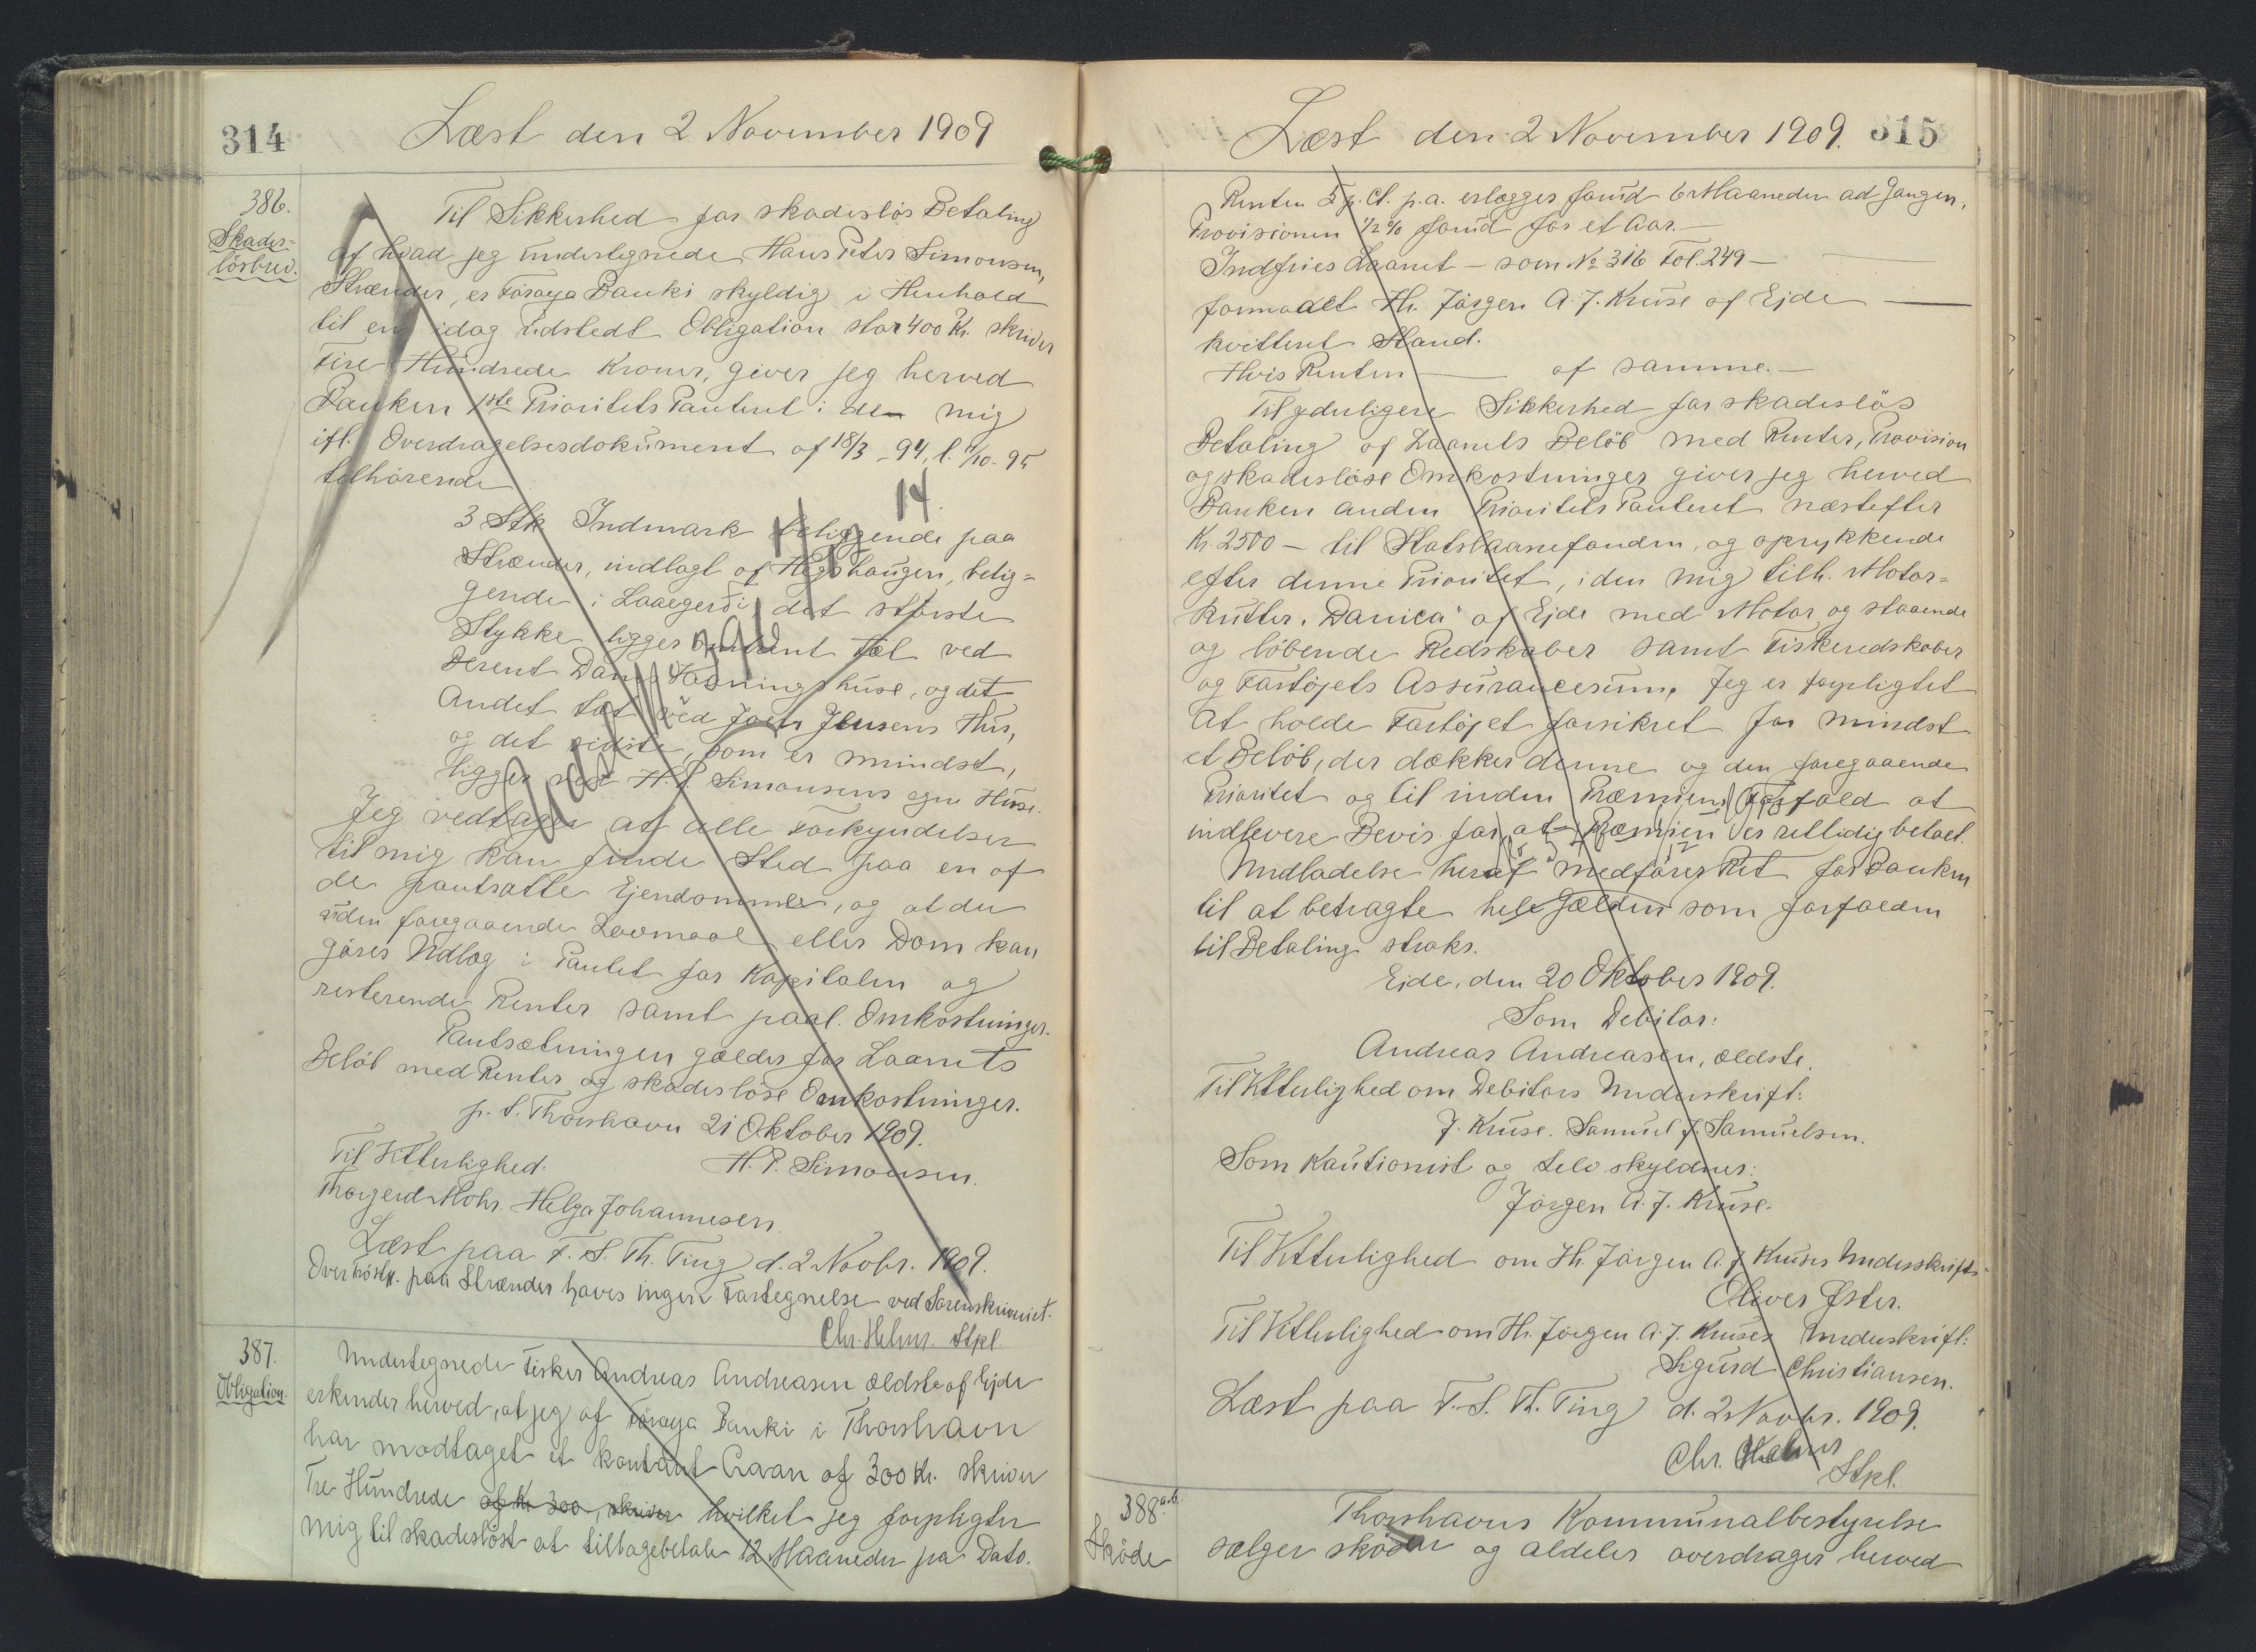 314
Læst den 2 November 1909
386.
Skades=
lösbrev.
Til Sikkerhed for skadeslös Betaling
af hvad jeg undertegnede Hans Peter Simonsen,
Strænder, er Föroya Banki skyldig i Henhold
til en idag udstedt Obligation stor 400 Kr. skriver
Fire Hundrede Kroner, giver jeg herved
Banken 1ste Prioritets Panteret i de mig
ifl. Overdragelsesdokument af 18/3 - 94, l. 1/10 - 95
tilhörende
14
3 Stk Indmark beliggende paa
Strænder, indlagt af Høgshaugen, belig=
gende i Laaegerði, det störste
Stykke ligger omtrent tæt ved
Berent Dams Vaaningshuse, og det
Andet tæt ved Joen Jensens Hus,
og det sidste, som er mindst,
ligger ved H. P. Simonsens egne Huse.
Jeg vedtager at alle Forkyndelser
til mig kan finde Sted paa en af
de pantsatte Ejendomme, og at der
uden foregaaende Lovmaal eller Dom kan
göres Udlæg i Pantet for Kapitalen og
resterende Renter samt paal. Omkostninger.
Pantsætningen gælder for Laanets
Belöb med Renter og skadeslöse Omkostninger.
p. t. Thorshavn 21 Oktober 1909.
Til Vitterlighed: H. P. Simonsen.
Thorgerd Mohr. Helga Johannesen.
Læst paa F. S. Th. Ting d. 2 Novbr. 1909.
Over paa Strænder haves ingen Fortegnelse ved Sorenskriveriet.
Chr. Helms. Stpl.
387.
Obligation.
Undertegnede Fisker Andreas Andreasen ældste af Ejde
erkender herved, at jeg af Föroya Banki i Thorshavn
har modtaget et kontant Laan af 300 Kr. skriver
Tre Hundrede af Kr 300, skriver hvilket jeg forpligter
mig til skadeslöst at tilbagebetale 12 Maaneder fra Dato.
Læst den 2 November 1909. 315
Renten 5 p. Ct. p. a. erlægges forud 6 Maaneder ad Gangen,
Provisionen 1/2 % forud for et Aar.—
Indfries Laanet — som No 316 Fol. 249 —
formaaet Hr. Jörgen A. J. Kruse af Ejde —
kvitteret Stand.
Hvis Renten — af samme.—
Til yderligere Sikkerhed for skadeslös
Betaling af Laanets Belöb med Renter, Provision
og skadeslöse Omkostninger giver jeg herved
Banken anden Prioritets Panteret næstefter
Kr. 2500 — til Statslaanefonden, og oprykkende
efter denne Prioritet, i den mig tilh. Motor=
kutter "Danica" af Ejde med Motor og staaende
og löbende Redskaber samt Fiskeredskaber
og Fartöjets Assurancesum. Jeg er forpligtet
at holde Fartöjet forsikret for mindst
et Belöb, der dækker denne og den foregaaende
Prioritet og til inden Præmiens Forfald at
indlevere Bevis for, at Præmien er rettidig betalt.
Undladelse heraf medförer Ret for Banken
til at betragte hele Gælden som forfalden
til Betaling straks.
Eide, den 20 Oktober 1909.
Som Debitor:
Andreas Andreasen, ældste.
Til Vitterlighed om Debitors Underskrift:
J. Kruse. Samuel J. Samuelsen.
Som Kautionist og Selvskyldner:
Jörgen A. J. Kruse.
Til Vitterlighed om Hr. Jörgen A. J. Kruses Underskrift:
Oliver Øster.
Til Vitterlighed om Hr. Jörgen A. J. Kruses Underskrift:
Sigurd Christiansen.
Læst paa F. S. Th. Ting d. 2 Novbr. 1909.
Chr. Helms
Stpl.
388 a.b.
Sköde
Thorshavns Kommunalbestyrelse
sælger sköder og aldeles overdrager herved